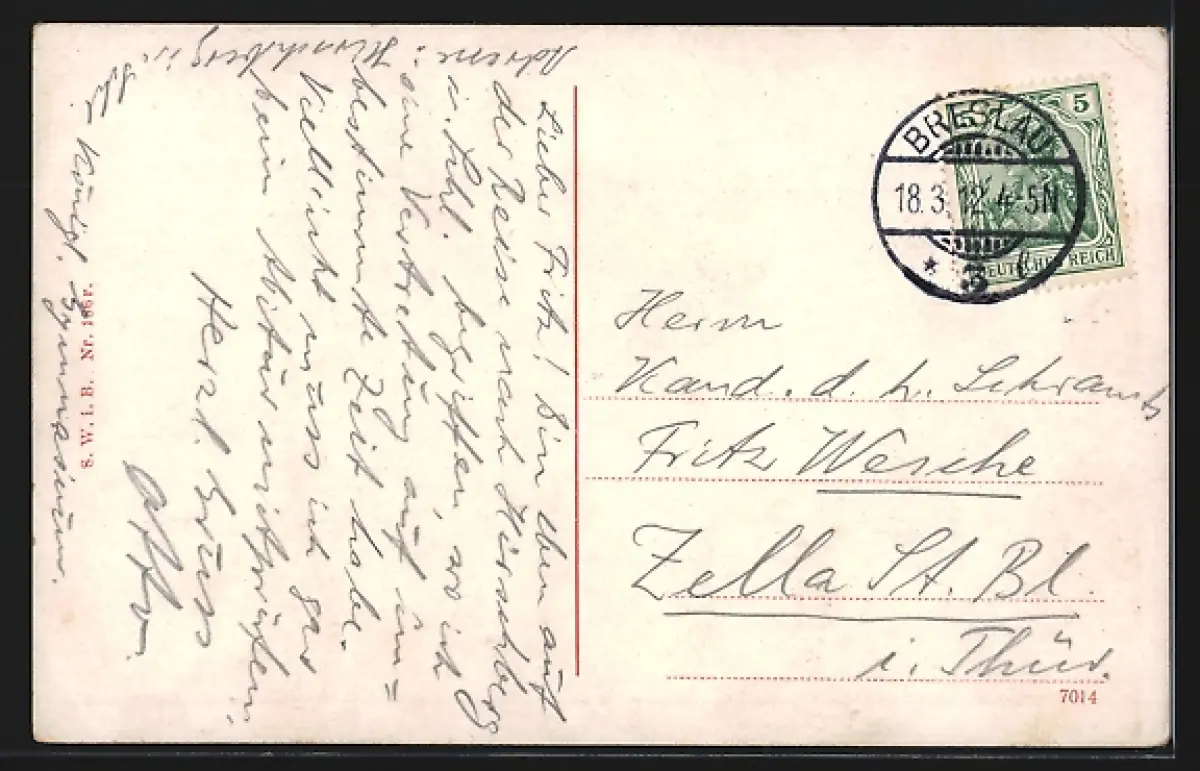 Lieber Fritz! Bin eben auf
der Reise nach Hirschberg
i. Schl. begriffen, wo ich
eine Vertretung auf un=
bestimmte Zeit habe.
Vielleicht muss ich gar
beim Abitur mitprüfen.
Herzl. Gruss
Otto.
Adresse: Hirschberg i. Schl.
Königl. Gymnasium.
S. W. i. B. Nr. 166 r.
5
DEUTSCHES REICH
BRESLAU
18.3.12 4-5N
* 3
Herrn
Kand. d. h. Schramts
Fritz Wesche
Zella St. Bl.
i. Thür.
7014